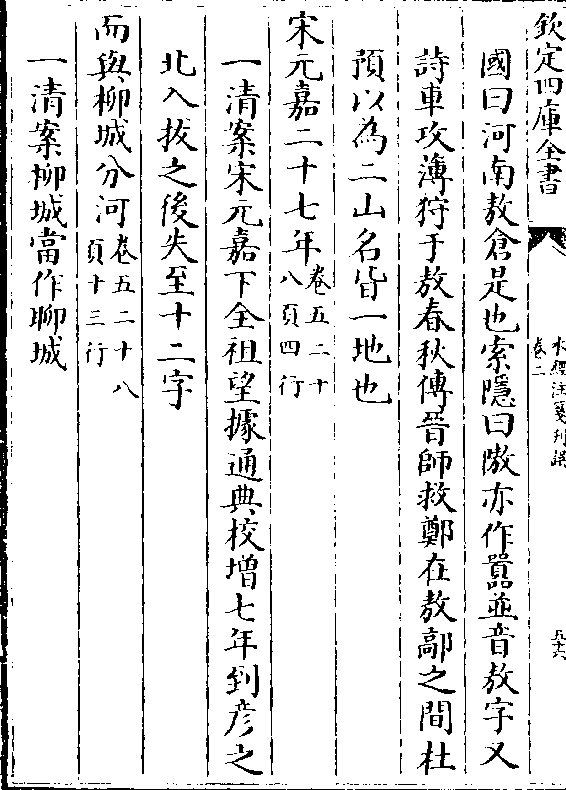 欽定四庫全書
水經注箋刊誤
卷二
五十六
國曰河南敖倉是也索隱曰隞亦作嚻並音敖字又
詩車攻薄狩于敖春秋傳晉師救鄭在敖鄗之間杜
預以為二山名皆一地也
宋元嘉二十七年卷五二十八頁四行
一清案宋元嘉下全祖望據通典校增七年到彦之
北入拔之後失至十二字
而與柳城分河卷五二十八頁十三行
一清案柳城當作聊城